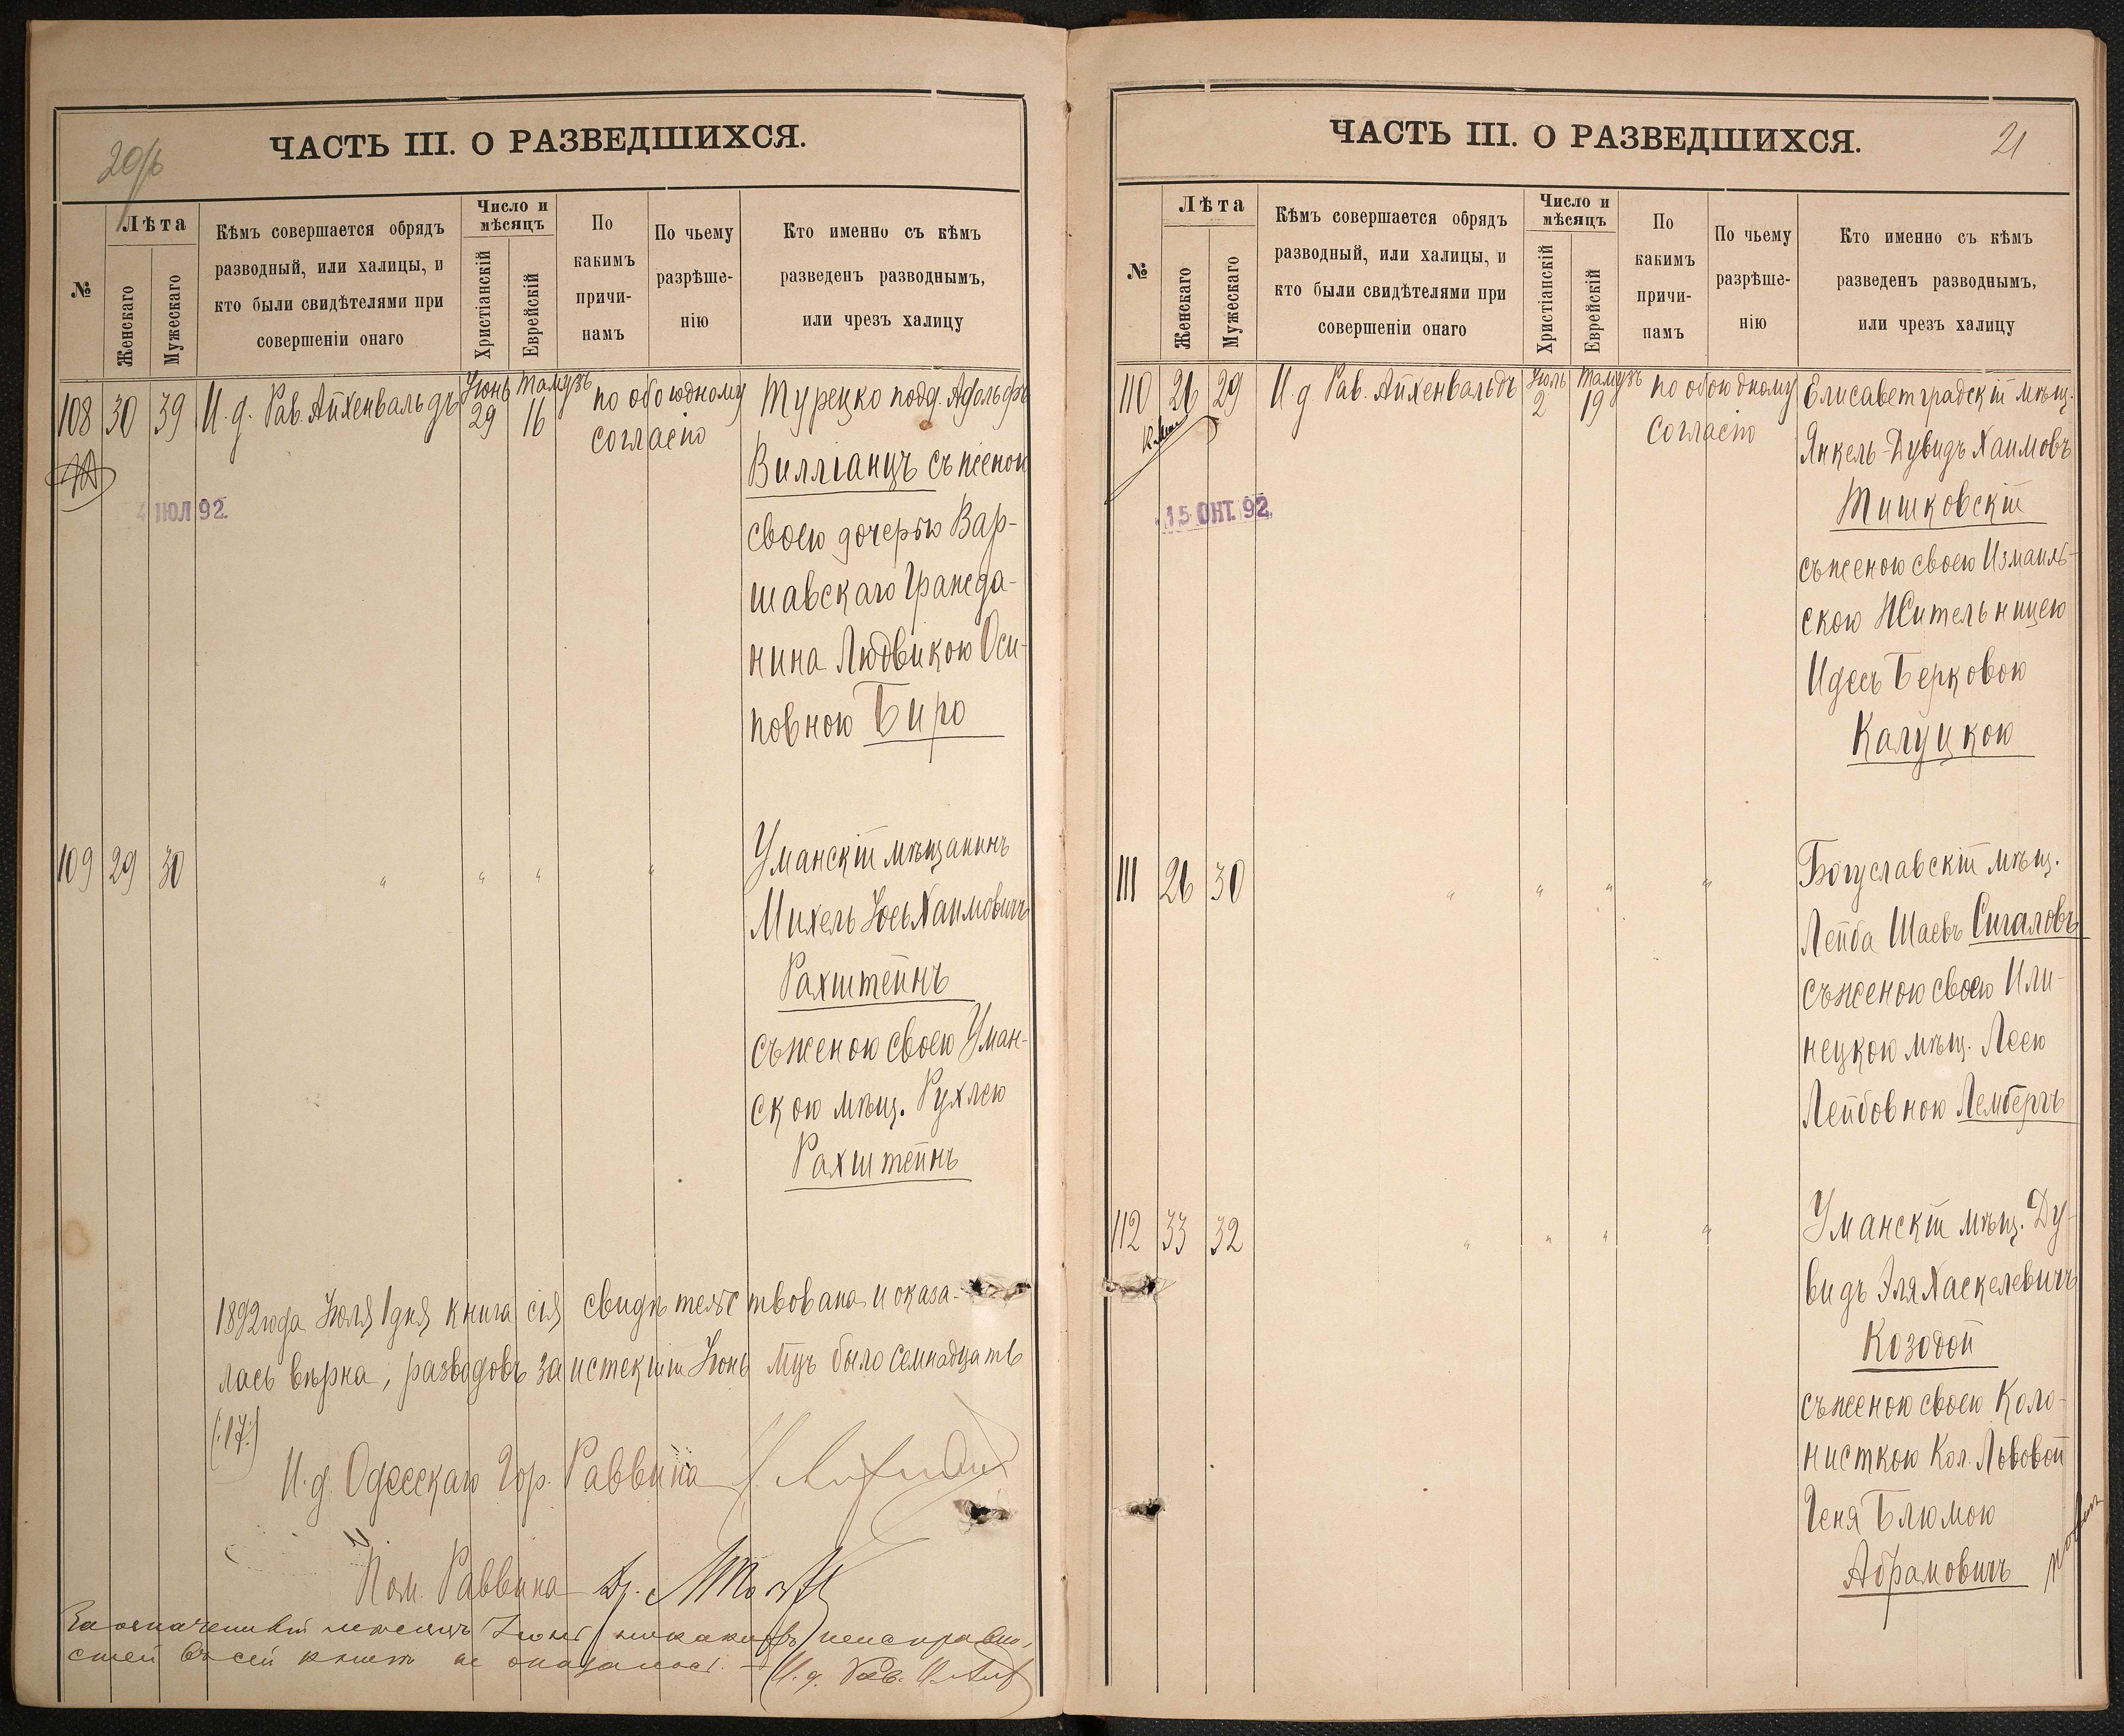 ЧАСТЬ III. О РАЗВЕДШИХСЯ.
№
Лѣта
Женскаго
Мужескаго
Кѣмъ совершается обрядъ
разводный, или халицы, и
кто были свидѣтелями при
совершеніи онаго
Число и
мѣсяцъ
Христіанскій
Еврейскій
По
какимъ
причи-
намъ
По чьему
разрѣше-
нію
Кто именно съ кѣмъ
разведенъ разводнымъ,
или чрезъ халицу
108 30 39 И. д. Рав. Айхенвальдъ Іюнь 29 Тамузъ 16 по обоюдному
согласію
Турецко подд. Адольфъ
Вилліанцъ съ женою
своею дочерью Вар-
шавскаго Гражда-
нина Людвикою Оси-
повною Биро
4 ІЮЛ 92.
109 29 30 " " " "
Уманскій мѣщанинъ
Михель Іось Хаимовичъ
Рахштейнъ
съ женою своею Уман-
скою мѣщ. Рухлею
Рахштейнъ
1892 года Іюля 1 дня книга сія свидѣтельствована и оказа-
лась вѣрна, разводовъ за истекшій Іюнь мцъ было семнадцать
(:17:)
И. д. Одесскаго Гор. Раввина
Пом. Раввина Др.
За означенный мѣсяцъ Іюнь никакихъ неисправно-
стей въ сей книгѣ не оказалось. И. д. Рав.
ЧАСТЬ III. О РАЗВЕДШИХСЯ.
21
№
Лѣта
Женскаго
Мужескаго
Кѣмъ совершается обрядъ
разводный, или халицы, и
кто были свидѣтелями при
совершеніи онаго
Число и
мѣсяцъ
Христіанскій
Еврейскій
По
какимъ
причи-
намъ
По чьему
разрѣше-
нію
Кто именно съ кѣмъ
разведенъ разводнымъ,
или чрезъ халицу
110 26 29 И. д. Рав. Айхенвальдъ Іюль 2 Тамузъ 19 по обоюдному
согласію
Елисаветградскій мѣщ.
Янкель-Дувидъ Хаимовъ
Тишковскій
съ женою своею Измаиль-
скою Жительницею
Идесъ Берковою
Калуцкою
15 ОКТ. 92.
111 26 30 " " " "
Богуславскій мѣщ.
Лейба Шаевъ Сигаловъ
съ женою своею Или-
нецкою мѣщ. Леею
Лейбовною Лембергъ
112 33 32 " " " "
Уманскій мѣщ. Ду-
видъ Эля Хаскелевичъ
Козодой
съ женою своею Коло-
нисткою Кол. Львовой
Геня Блюмою
Абрамовичъ